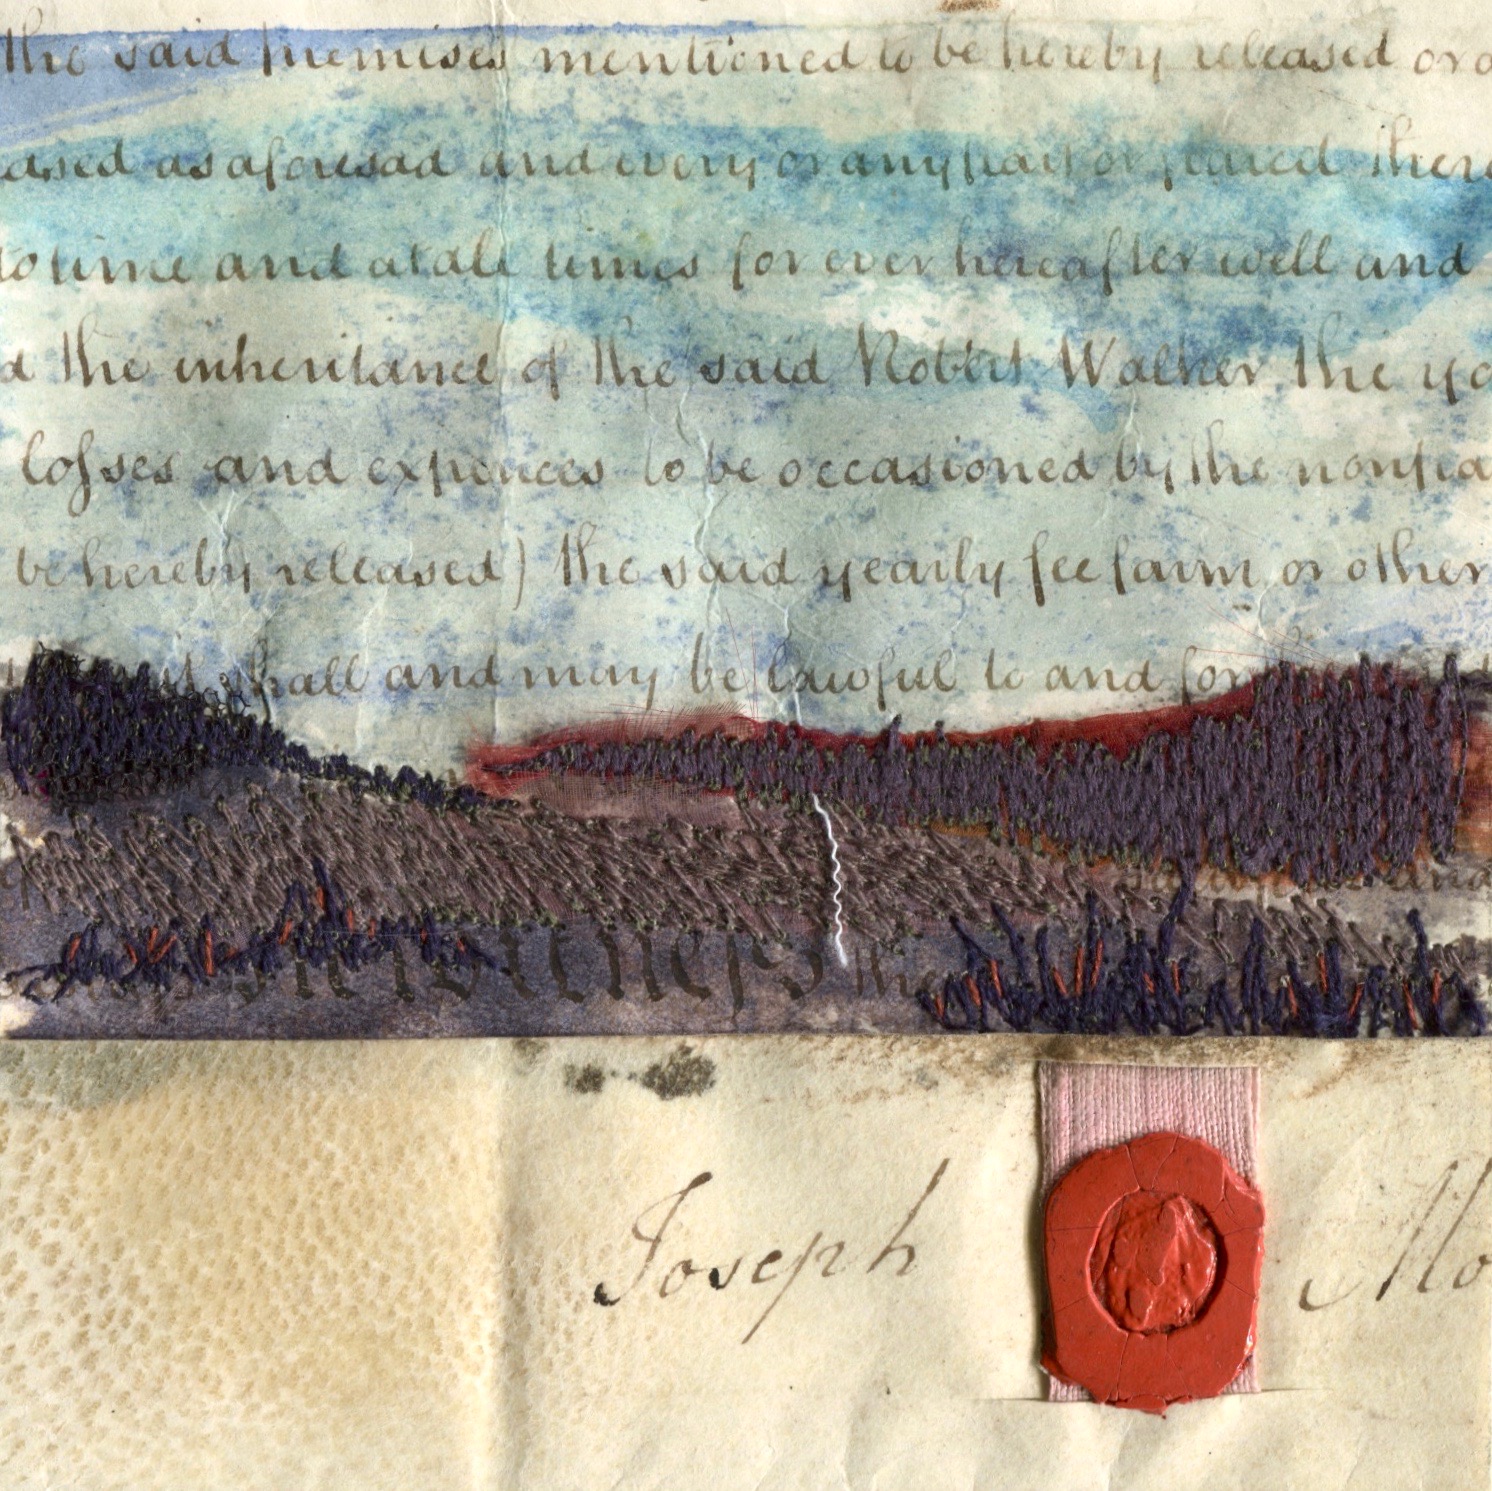 the said premises mentioned to be hereby released or
eased as aforesaid and every or any part or parcel there
to time and at all times for ever hereafter well and
d the inheritance of the said Robert Walker the yo
lofses and expences to be occasioned by the nonpa
be hereby released) the said yearly fee farm or other
shall and may be lawful to and for
and
In Witness the
Joseph Mo